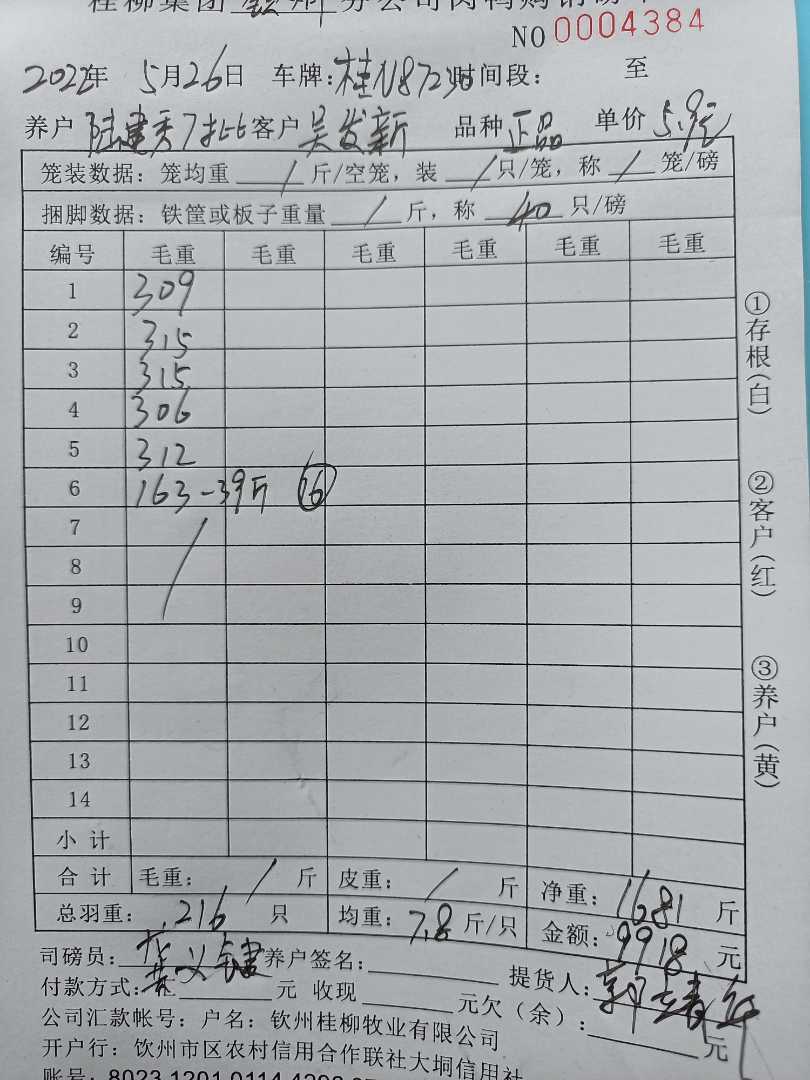 桂柳集团 钦州 分公司肉鸭购销磅单
NO 0004384
2022年 5月26日 车牌:桂N8723 时间段: 至
养户 陆建秀7批 客户 吴发新 品种 正品 单价 5.9元
笼装数据: 笼均重 / 斤/空笼, 装 / 只/笼, 称 / 笼/磅
捆脚数据: 铁筐或板子重量 / 斤, 称 40 只/磅
编号 毛重 毛重 毛重 毛重 毛重 毛重
1 309
2 315
3 315
4 306
5 312
6 163-39斤 16
7
8
9
10
11
12
13
14
小 计
合 计 毛重: / 斤 皮重: / 斤 净重: 1681 斤
总羽重: 216 只 均重: 7.8 斤/只 金额: 9918 元
司磅员: 养户签名: 提货人:
付款方式: 元 收现 元欠(余): 元
公司汇款帐号: 户名: 钦州桂柳牧业有限公司
开户行: 钦州市区农村信用合作联社大垌信用社
账号: 8023 1201 0114
①存根(白)
②客户(红)
③养户(黄)